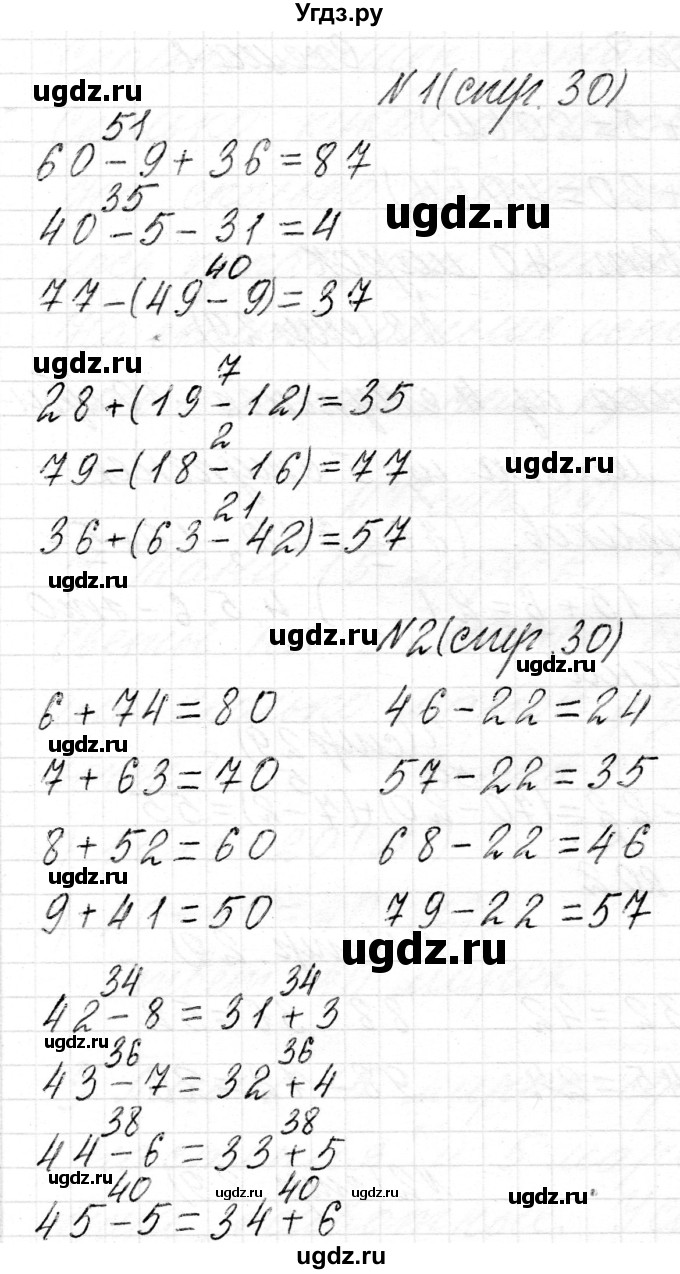 Угдз.ру
ugdz.ru
N1(стр. 30)
51
60-9+36=87
35
ugdz.ru
40-5-31=4
40
77-(49-9)=37
ugdz.ru
7
28+(19-12)=35
2
79-(18-16)=77
ugdz.ru
21
36+(63-42)=57
ugdz.ru
ugdz.ru
N2(стр. 30)
ugdz.ru
6+74=80 46-22=24
ugdz.ru
7+63=70 57-22=35
8+52=60 68-22=46
ugdz.ru
9+41=50 79-22=57
ugdz.ru
34 34
42-8=31+3
ugdz.ru
36 36
43-7=32+4
38 38
44-6=33+5
ugdz.ru
40 ugdz.ru 40 ugdz.ru ugdz.ru
45-5=34+6
ugdz.ru